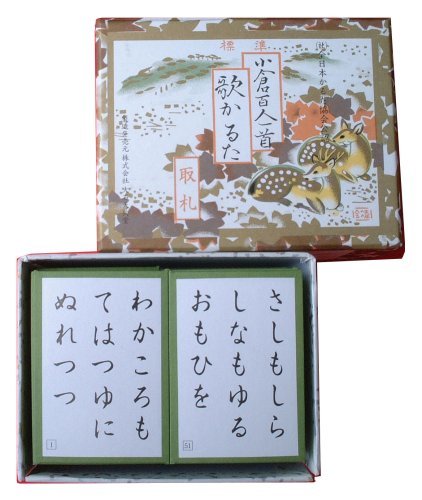 標準
全日本かるた協会
小倉百人一首
歌かるた
取札
さしもしら
しなもゆる
おもひを
51
わかころも
てはつゆに
ぬれつつ
1